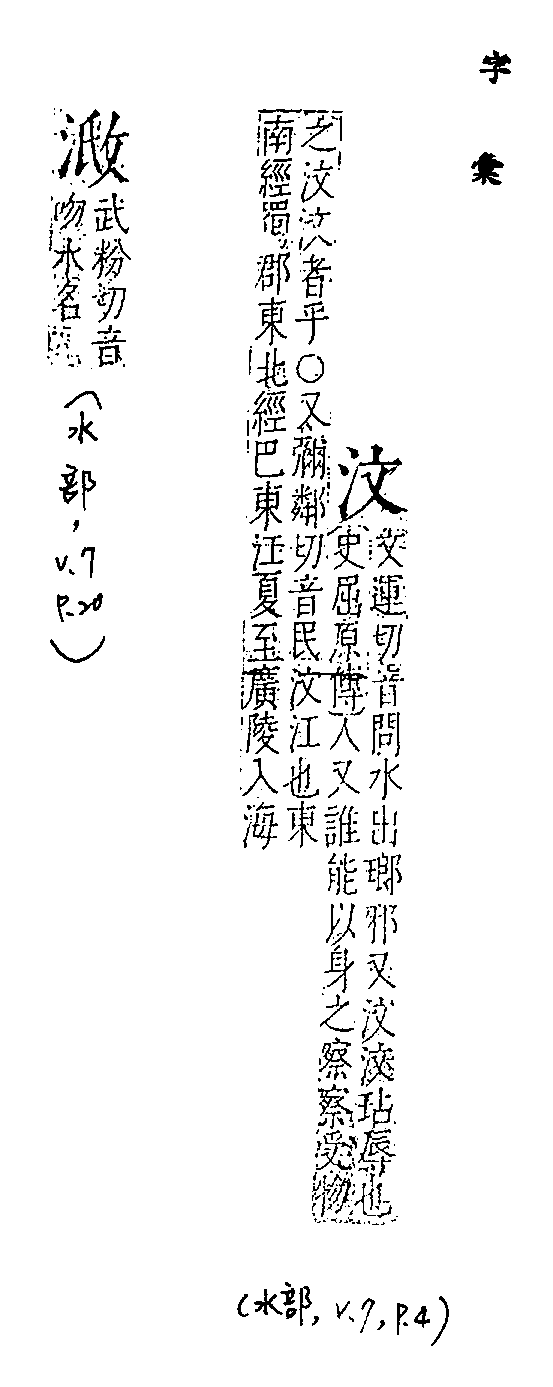 字彙
汶
文運切音問水出瑯邪又汶汶玷辱也
史屈原傳人又誰能以身之察察受物
之汶汶者乎○又彌鄰切音民汶江也東
南經蜀郡東北經巴東江夏至廣陵入海
(水部, V.7, P.4)
武粉切音
吻水名
(水部, V.7 P.20)